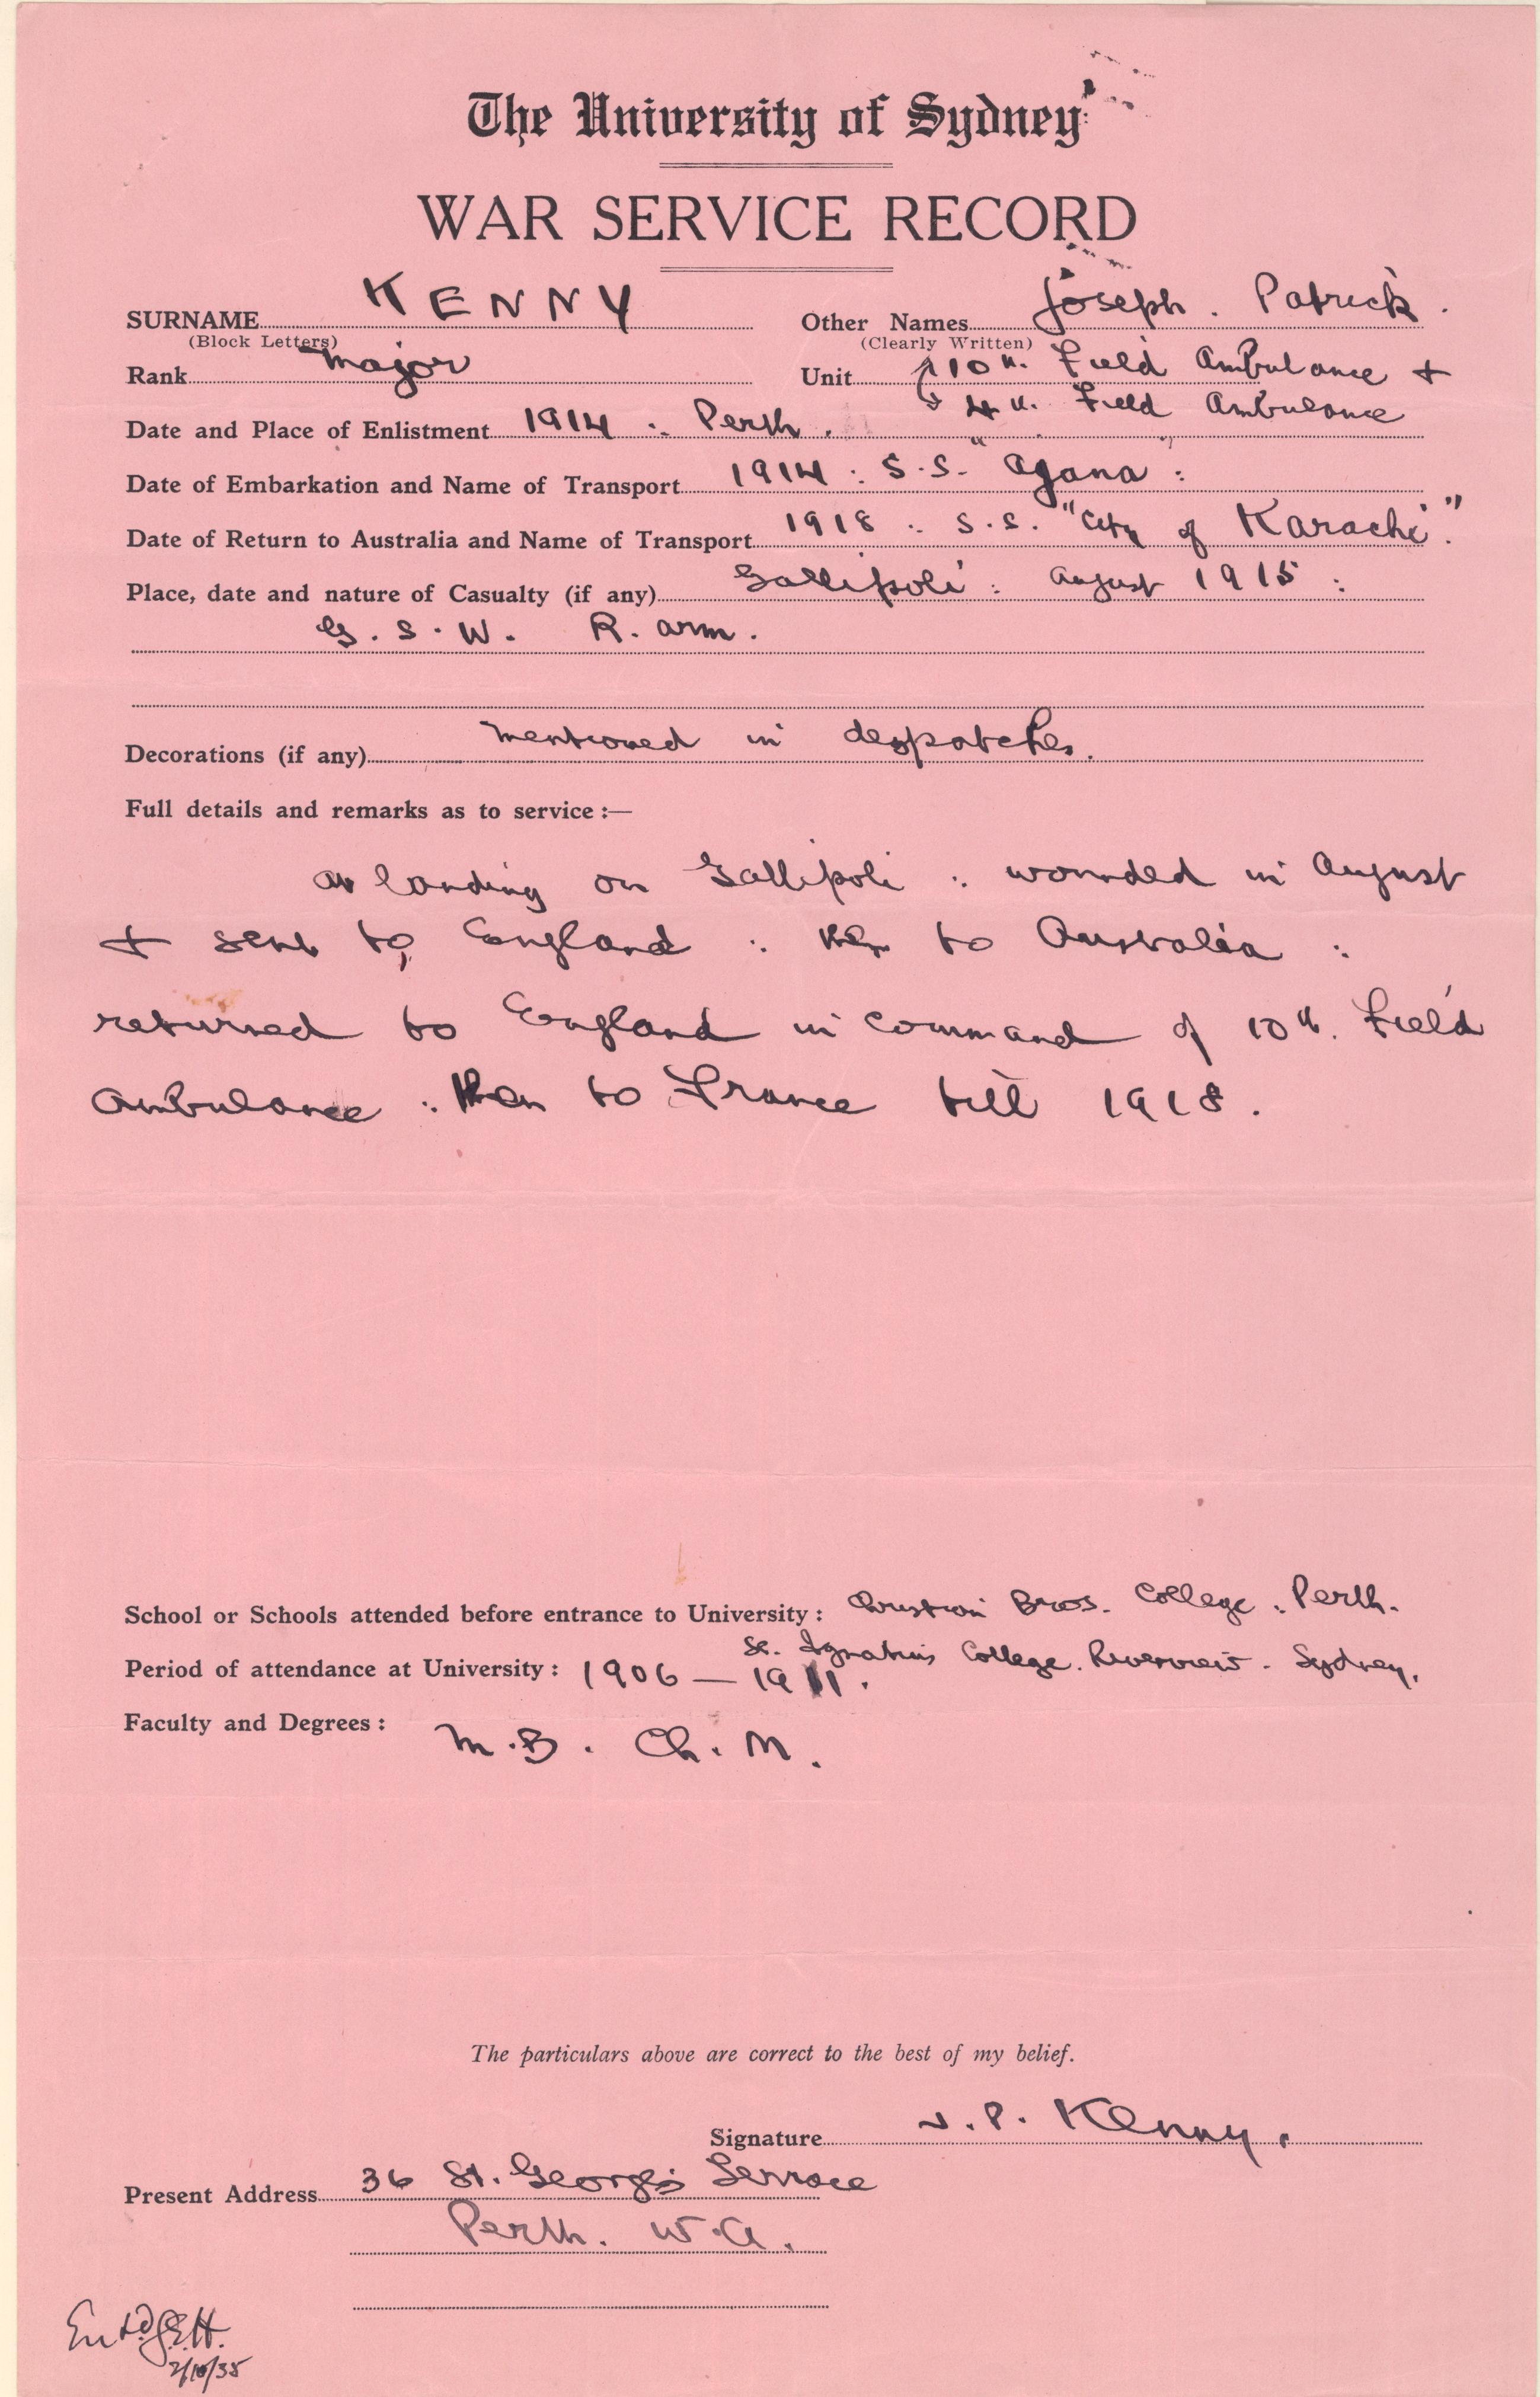 The University of Sydney
WAR SERVICE RECORD
SURNAME KENNY Other Names Joseph . Patrick .
(Block Letters) (Clearly Written)
Rank Major Unit 10th. Field Ambulance +
4th. Field Ambulance
Date and Place of Enlistment 1914 : Perth .
Date of Embarkation and Name of Transport 1914 : S.S. "Ajana" :
Date of Return to Australia and Name of Transport 1918 : S.S. "City of Karachi".
Place, date and nature of Casualty (if any) Gallipoli : August 1915 :
G. S. W. R. arm.
Decorations (if any) Mentioned in despatches.
Full details and remarks as to service :—
At landing on Gallipoli : wounded in August
+ sent to England : then to Australia :
returned to England in command of 10th. Field
Ambulance : then to France till 1918.
School or Schools attended before entrance to University : Christian Bros. College . Perth.
St. Ignatius College. Riverview. Sydney.
Period of attendance at University : 1906 — 1911.
Faculty and Degrees : M.B. Ch.M.
The particulars above are correct to the best of my belief.
Signature J. P. Kenny.
Present Address 36 St. George's Terrace
Perth. W.A.
Entd. G.E.H.
2/10/38